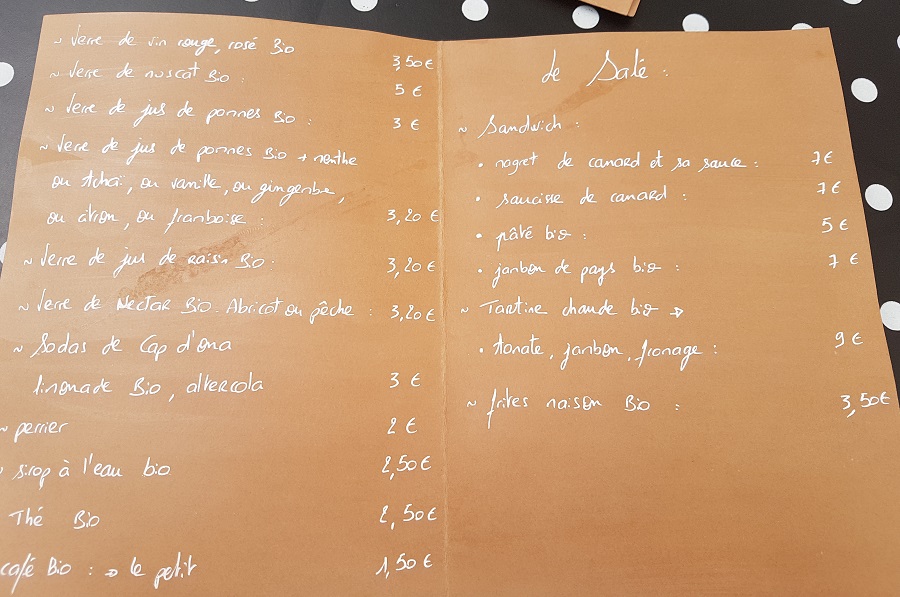 ~ Verre de vin rouge, rosé Bio 3,50€
~ Verre de muscat Bio : 5 €
~ Verre de jus de pommes Bio : 3 €
~ Verre de jus de pommes Bio + menthe
ou tchaï, ou vanille, ou gingembre,
ou citron, ou framboise : 3,20 €
~ Verre de jus de Raisin Bio : 3,20 €
~ Verre de Nectar Bio. Abricot ou pêche : 3,20 €
~ Sodas de Cap d'ona
limonade Bio, altercola 3 €
~ perrier 2 €
~ sirop à l'eau bio 2,50€
Thé Bio 2,50€
café Bio : → le petit 1,50 €
Le Salé :
~ Sandwich :
• magret de canard et sa sauce : 7€
• saucisse de canard : 7€
• pâté bio : 5 €
• jambon de pays bio : 7 €
~ Tartine chaude bio →
• tomate, jambon, fromage : 9 €
~ frites maison Bio : 3,50€